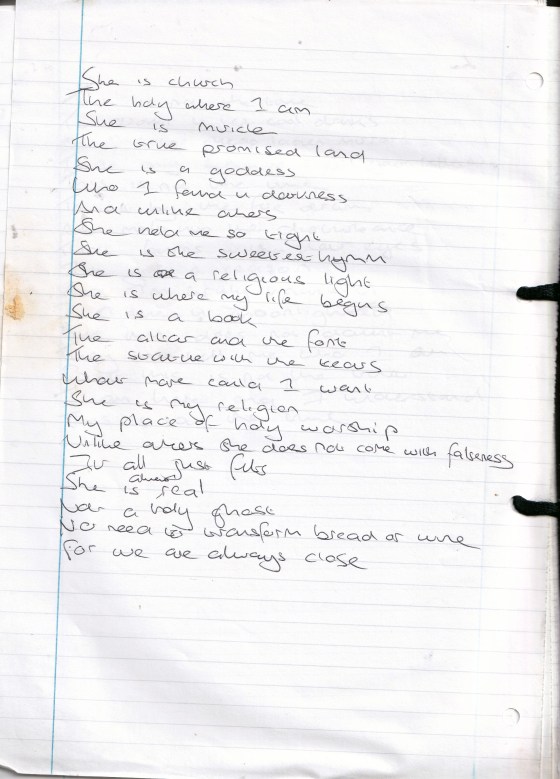 She is church
The holy where I am
She is muricle
The true promised land
She is a goddess
Who I found in darkness
And unlike others
She held me so tight
She is the sweetest hymn
She is a religious light
She is where my life begins
She is a book
The altar and the font
The statue with the tears
What more could I want
She is my religion
My place of holy worship
Unlike others she does not come with falseness
It all just fits
She is always real
Not a holy ghost
No need to transform bread or wine
For we are always close